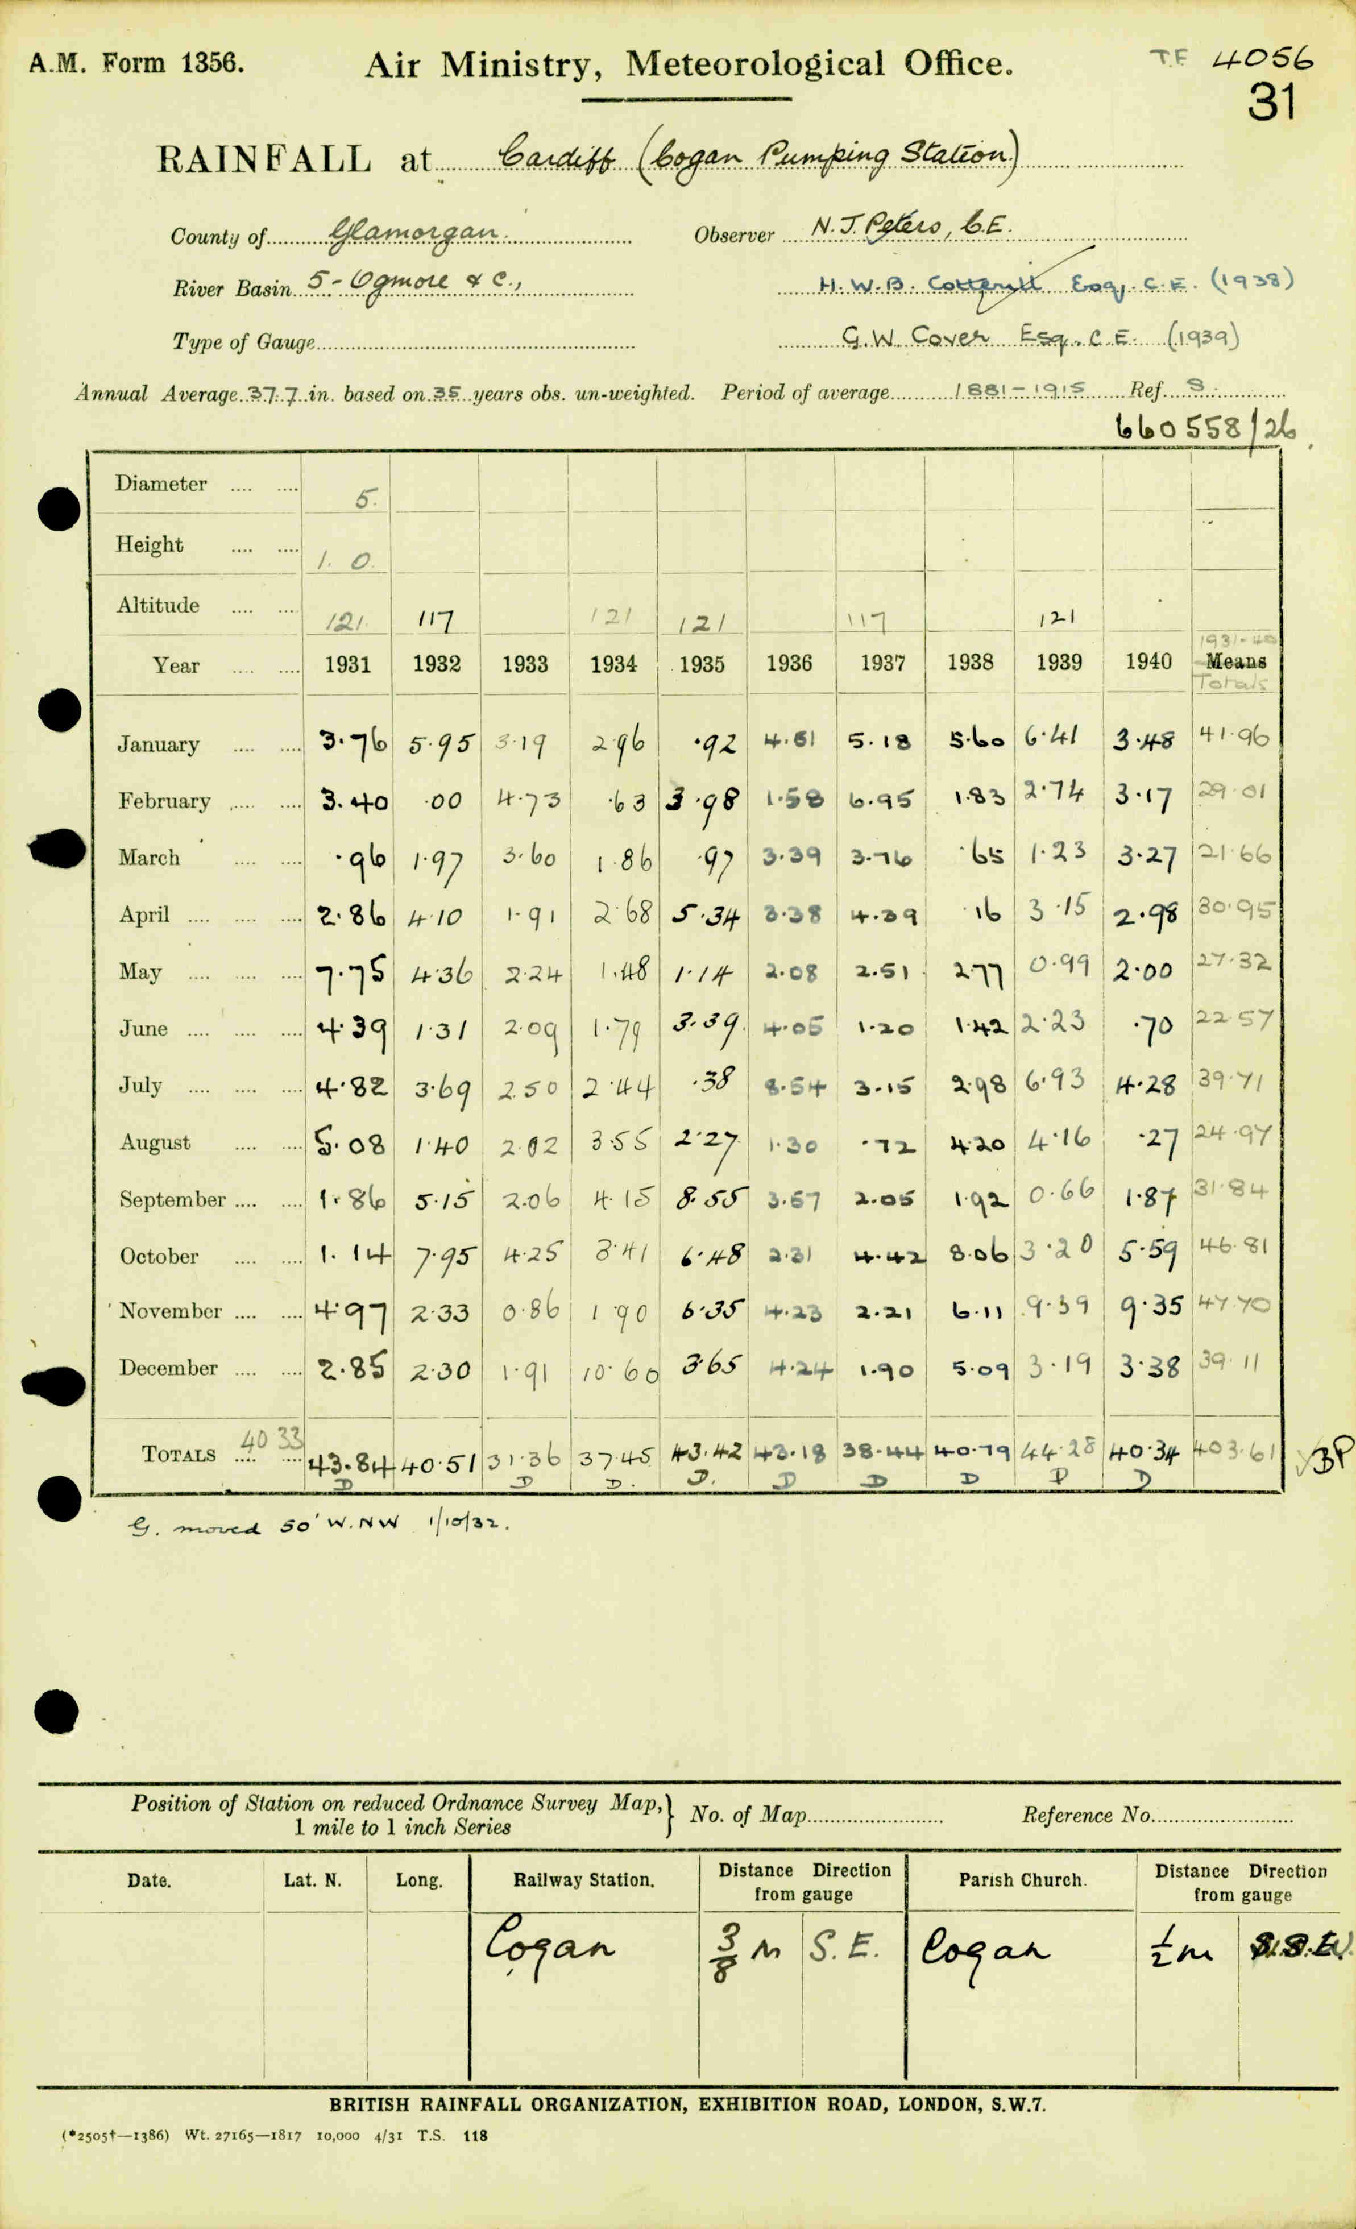 A.M. Form 1356.
Air Ministry, Meteorological Office.
T.F. 4056
31
RAINFALL at Cardiff (Cogan Pumping Station)
County of Glamorgan. Observer N.J. Peters, C.E.
River Basin 5 - Ogmore & C., H.W.B. Cotterill Esq. C.E. (1938)
Type of Gauge G.W. Cover Esq. C.E. (1939)
Annual Average 37.7 in. based on 35 years obs. un-weighted. Period of average 1881-1915 Ref. S.
660558/26
Diameter 5.
Height 1. 0
Altitude 121 117 121 121 117 121
1931-40
Year 1931 1932 1933 1934 1935 1936 1937 1938 1939 1940 Means
Totals
January 3.76 5.95 3.19 2.96 .92 4.51 5.18 5.60 6.41 3.48 41.96
February 3.40 .00 4.73 .63 3.98 1.58 6.95 1.83 2.74 3.17 29.01
March .96 1.97 3.60 1.86 .97 3.39 3.76 .65 1.23 3.27 21.66
April 2.86 4.10 1.91 2.68 5.34 3.38 4.39 .16 3.15 2.98 30.95
May 7.75 4.36 2.24 1.48 1.14 2.08 2.51 2.77 0.99 2.00 27.32
June 4.39 1.31 2.09 1.79 3.39 4.05 1.20 1.42 2.23 .70 22.57
July 4.82 3.69 2.50 2.44 .38 8.54 3.15 2.98 6.93 4.28 39.71
August 5.08 1.40 2.02 3.55 2.27 1.30 .72 4.20 4.16 .27 24.97
September 1.86 5.15 2.06 4.15 8.55 3.57 2.05 1.92 0.66 1.87 31.84
October 1.14 7.95 4.25 3.41 6.48 2.31 4.42 8.06 3.20 5.59 46.81
November 4.97 2.33 0.86 1.90 6.35 4.23 2.21 6.11 9.39 9.35 47.70
December 2.85 2.30 1.91 10.60 3.65 4.24 1.90 5.09 3.19 3.38 39.11
TOTALS 40 33 43.84 40.51 31.36 37.45 43.42 43.18 38.44 40.79 44.28 40.34 403.61 BP
D D D. D. D D D D D
G. moved 50' W.NW 1/10/32.
Position of Station on reduced Ordnance Survey Map,
1 mile to 1 inch Series
No. of Map Reference No.
Date. Lat. N. Long. Railway Station. Distance Direction from gauge Parish Church. Distance Direction from gauge
Cogan 3/8 m S.E. Cogan 1/2 m
BRITISH RAINFALL ORGANIZATION, EXHIBITION ROAD, LONDON, S.W.7.
(*2505†—1386) Wt. 27165—1817 10,000 4/31 T.S. 118